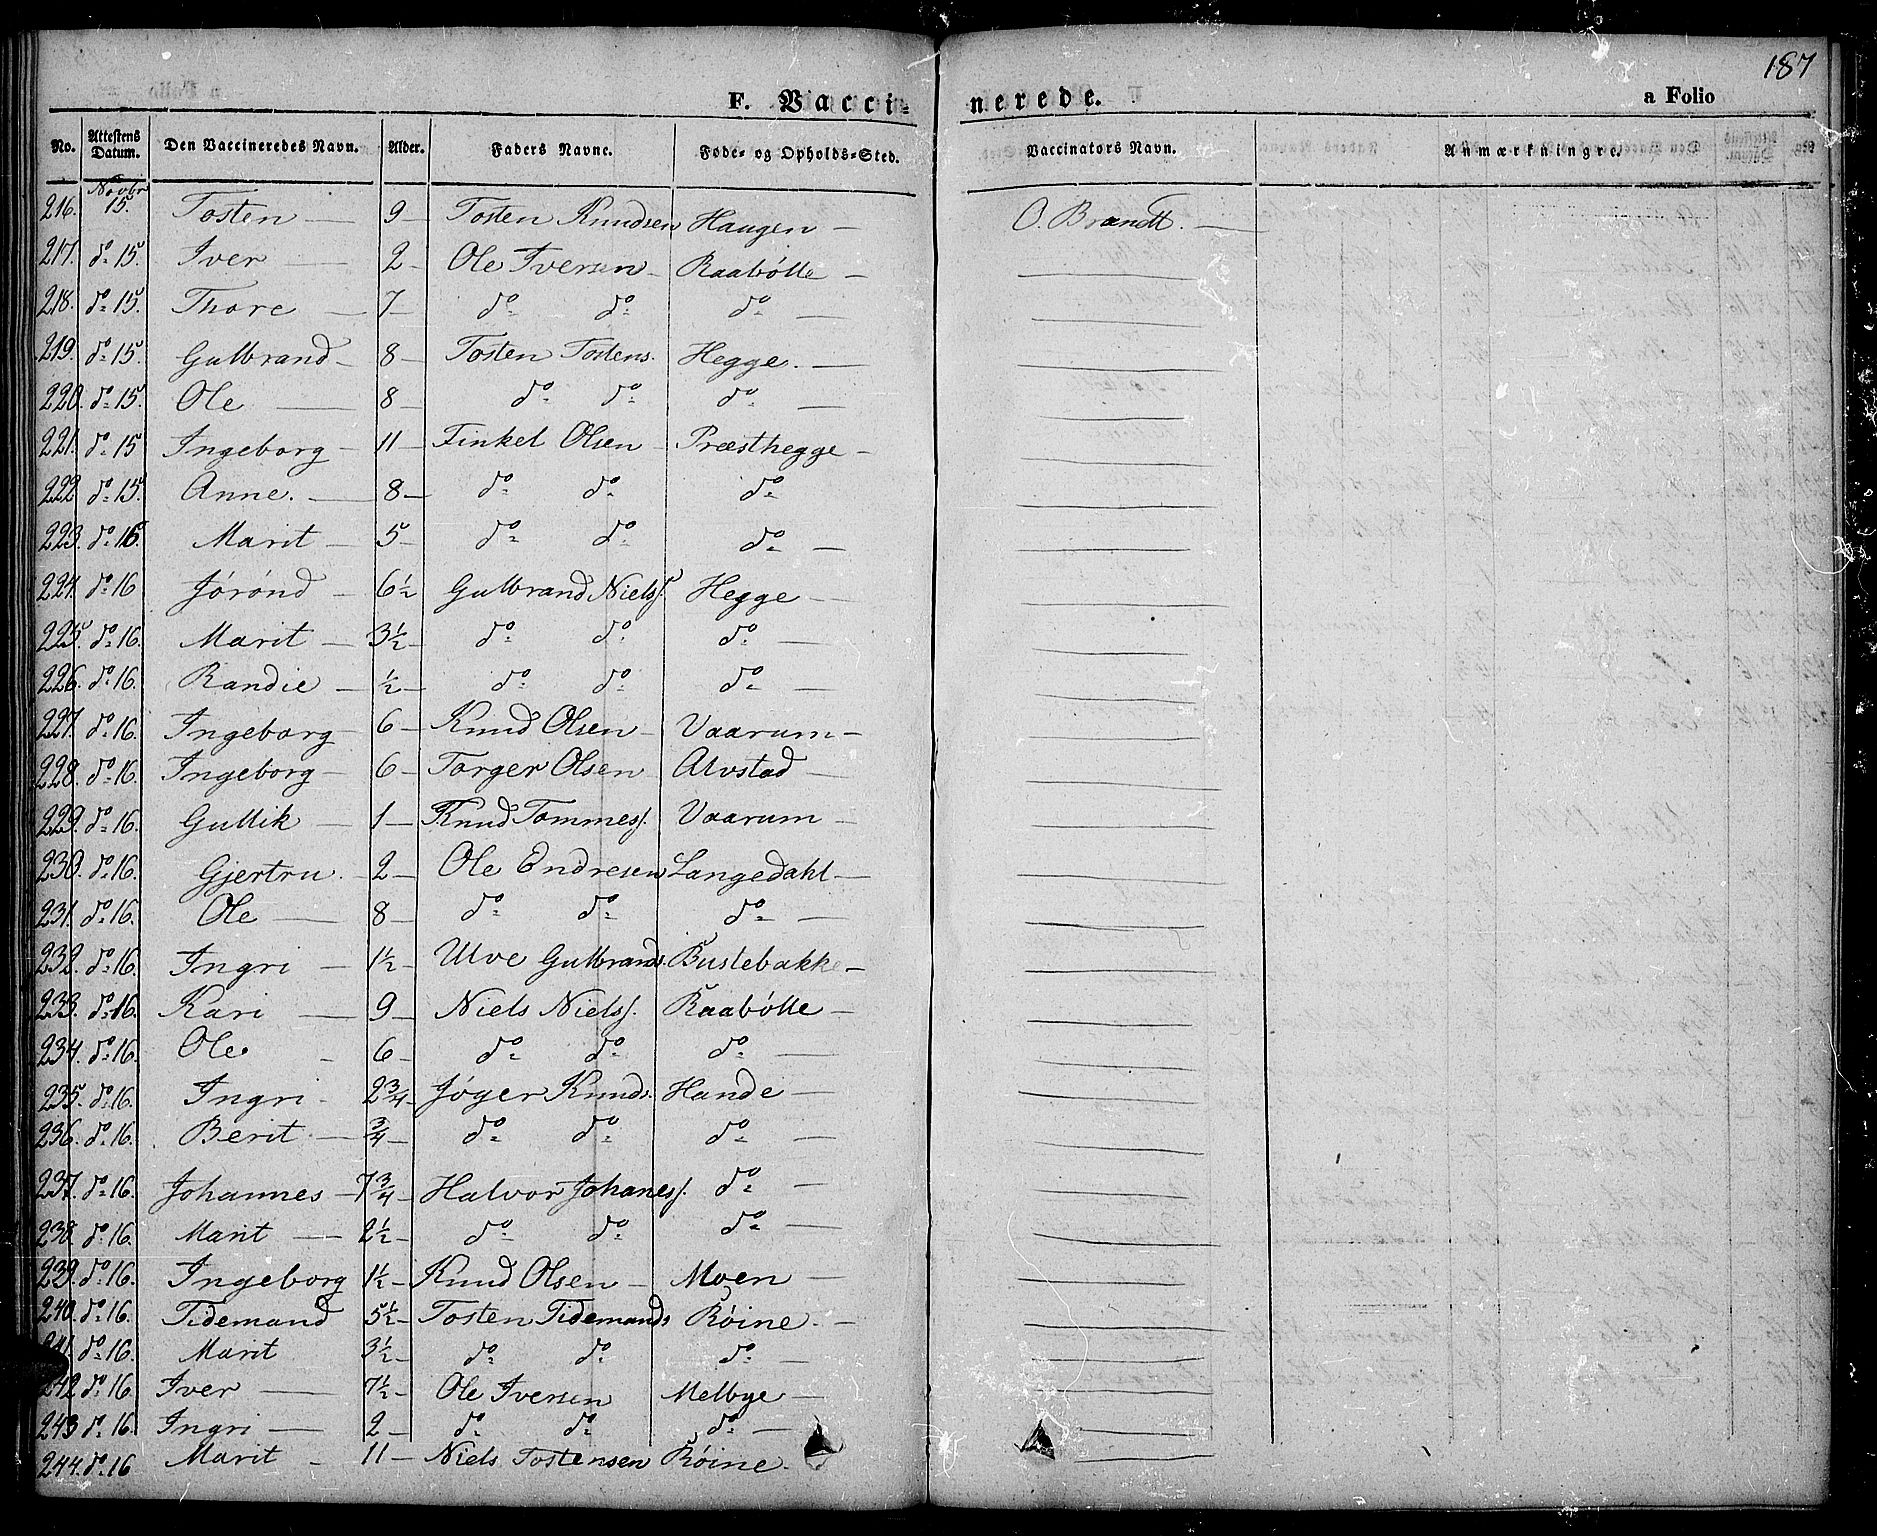 187
F. Vaccinerede. a Folio
No. Attestens Datum. Den Vaccineredes Navn. Alder. Faders Navne. Føde- og Opholds-Sted. Vaccinators Navn. Anmærkningre.
216. Novbr 15. Tosten — 9 — Tosten Knudsen Haugen — O. Brandt. —
217. do 15. Iver — 2 — Ole Iversen — Raabølle —
218. do 15. Thore — 7 — do do do —
219. do 15. Gulbrand — 8 — Tosten Tostens. Hegge. —
220. do 15. Ole — 8 — do do do —
221. do 15 Ingeborg — 11 — Finkel Olsen — Præsthegge —
222 do 15. Anne. — 8 — do do do
223. do 16. Marit — 5 — do do do —
224. do 16 Jørønd — 6½ Gulbrand Nielss. Hegge —
225. do 16. Marit — 3½ — do do do —
226. do 16. Randie — ½ — do do do —
227. do 16. Ingeborg — 6 — Knud Olsen — Vaarum —
228. do 16. Ingeborg — 6 — Torger Olsen Alvstad —
229. do 16. Gullik — 1 — Knud Tommess. Vaarum —
230. do 16. Gjertru. — 2 — Ole Endresen Langedahl —
231. do 16. Ole — 8 — do do do —
232. do 16. Ingri — 1½ — Ulve Gulbrands. Bustebakke —
233. do 16. Kari — 9 — Niels Nielss. Raabølle —
234. do 16. Ole — 6 — do do do —
235. do 16. Ingri — 2¾ — Jøger Knuds. Hande —
236. do 16. Berit. — ¾ — do do do —
237. do 16. Johannes — 7¾ — Halvor Johaness. do —
238. do 16. Marit — 2½ — do do do —
239. do 16. Ingeborg 1½ — Knud Olsen — Moen —
240. do 16. Tidemand 5½ — Tosten Tidemands Røine. —
241. do 16. Marit 3½ — do do do —
242 do 16. Iver — 7½ — Ole Iversen Melbye —
243 do 16. Ingri — 2 — do do do —
244. do 16 Marit — 11 — Niels Tostensen Røine.